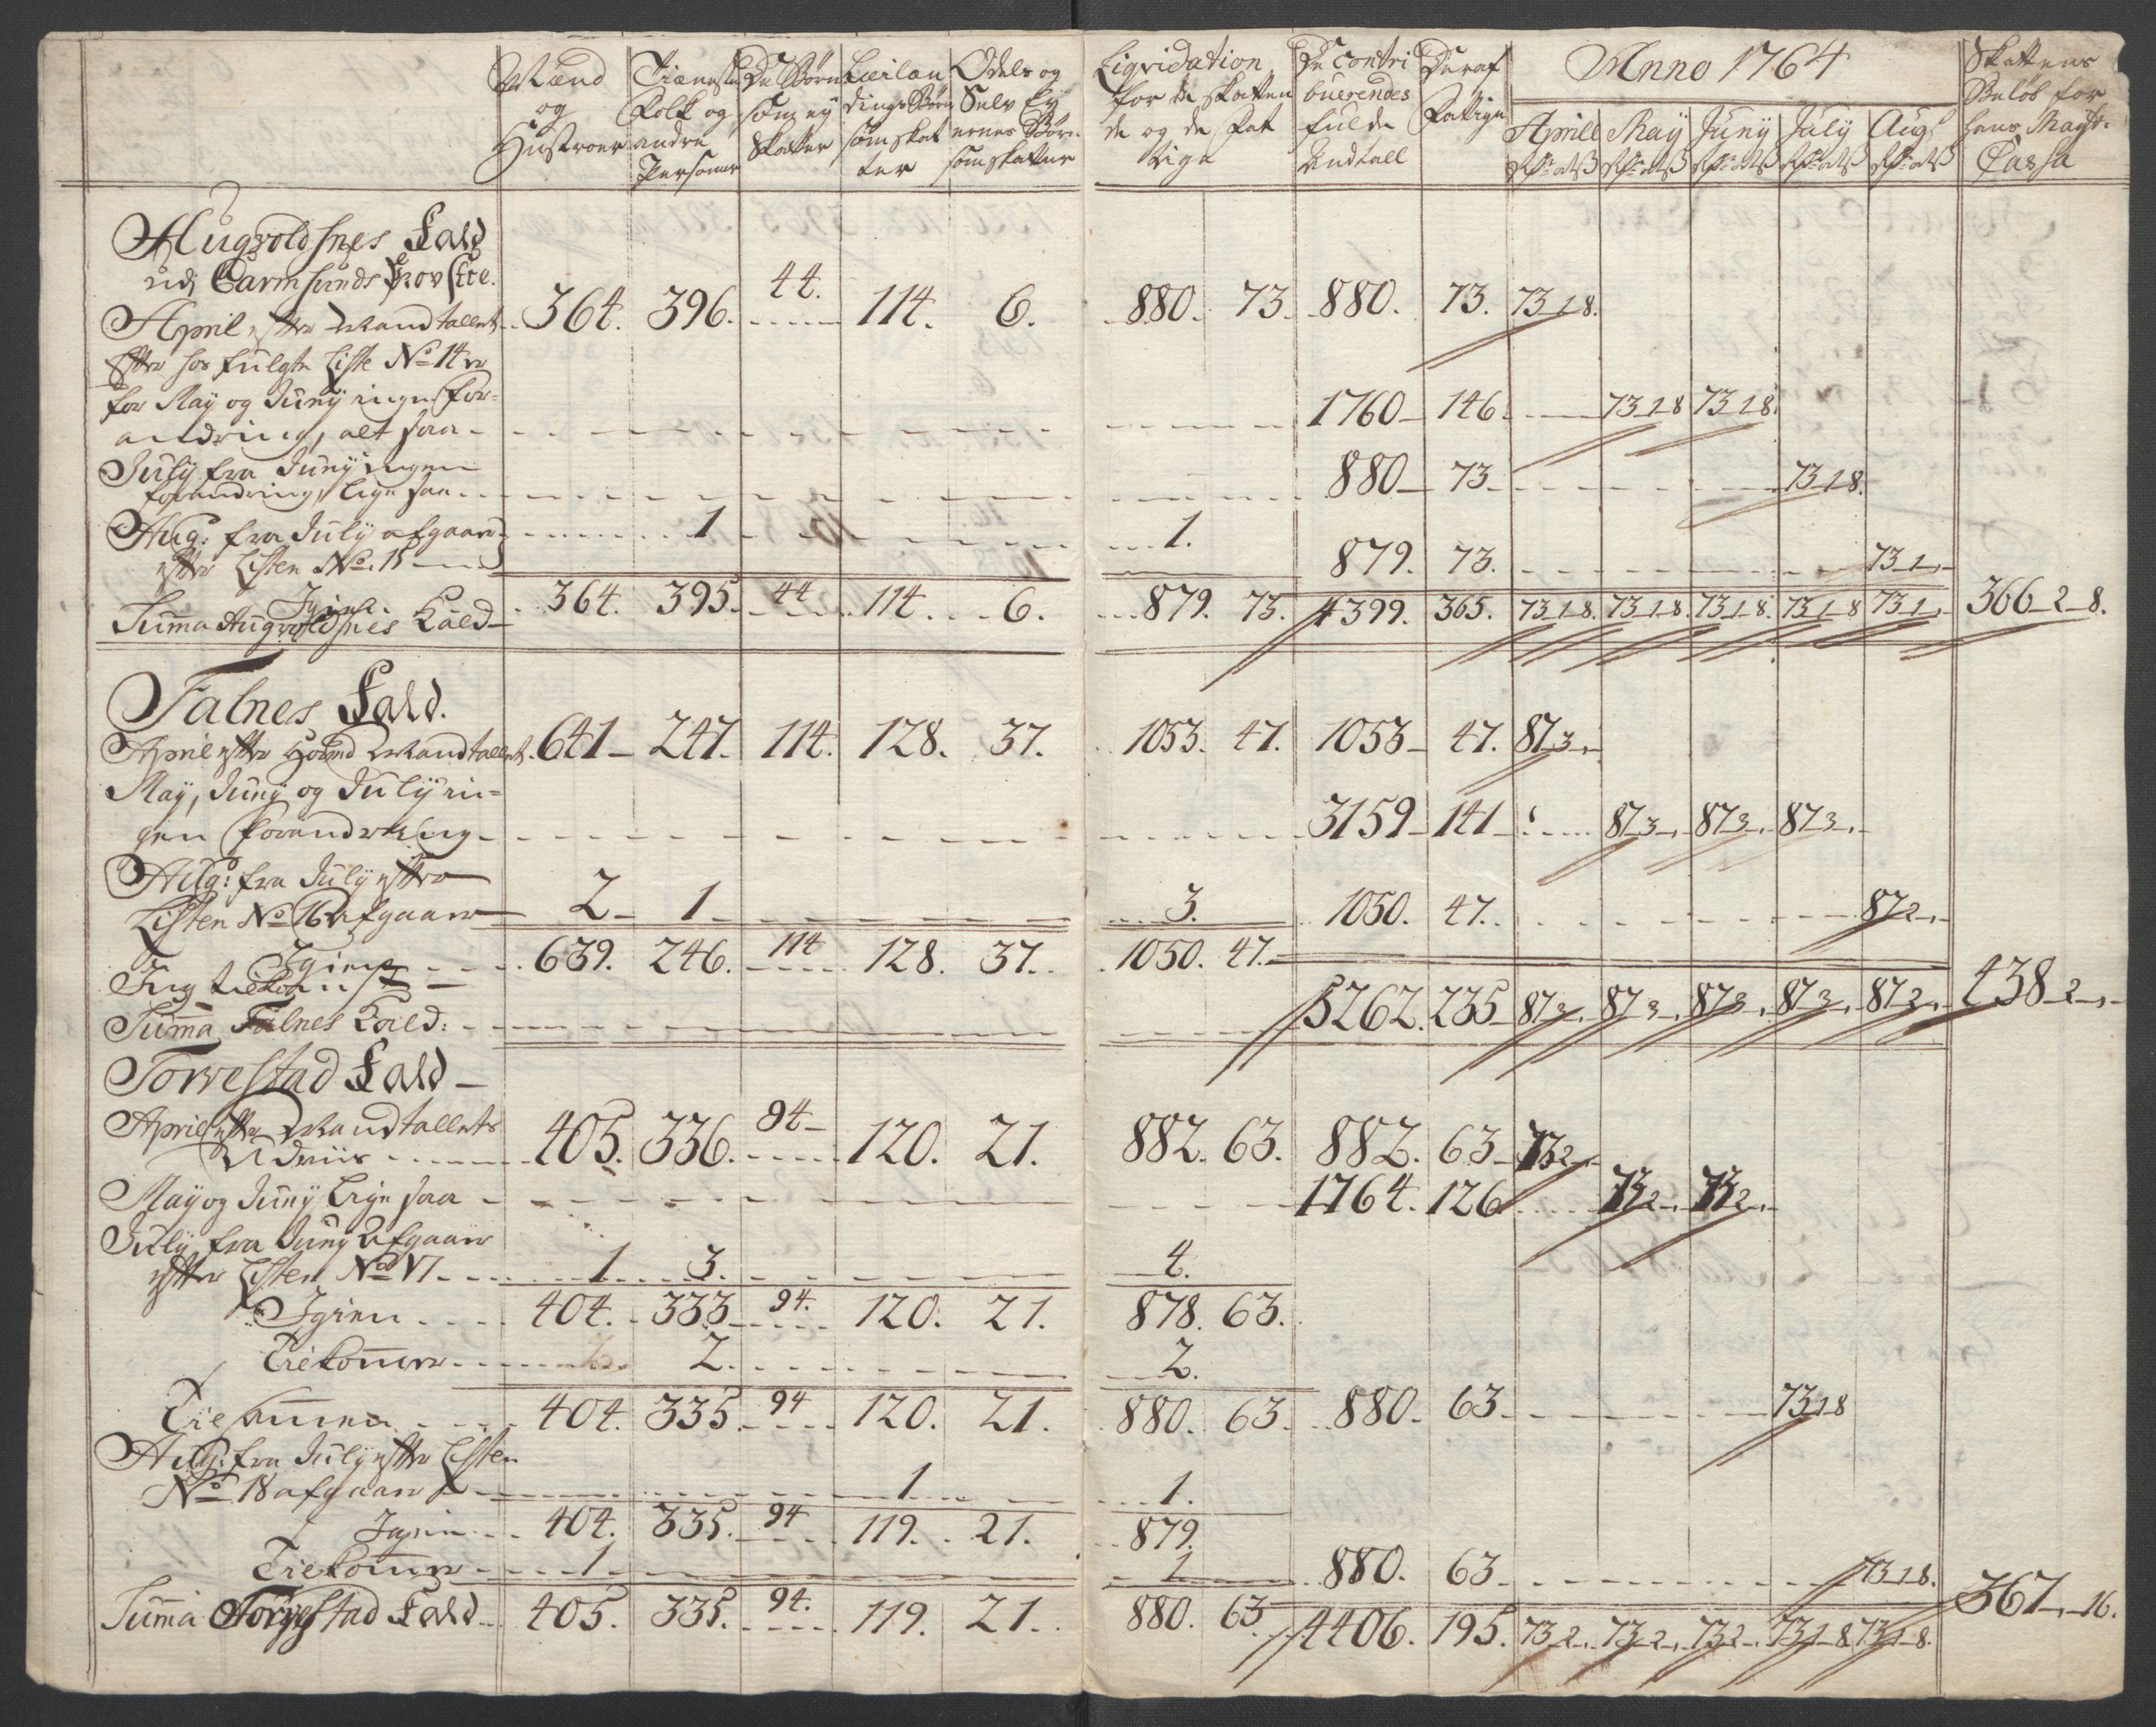 Mænd og Hustroer | Tieneste Folk og andre Personer | De Børn som ey Skatter | Leilændings Børn som skatter | Odels og Selv Ey ernes Børn som skatter | Liqvidation for de skattende og de fattige | De contribuerendes fulde Andtall | Deraf Fattige | Anno 1764 | Skattens Beløb for hans Mayts Cassa
Aprill | May | Juny | July | Augs
Augvoldsnes Kald
udj Carmsunds Provstie.
April efter Mandtallet | 364. | 396. | 44. | 114. | 6. | 880. | 73. | 880. | 73. | 73 1 8.
Efter hosfulgte Liste No 14 er
for May og Juny ingen for=
andring, alt saa | 1760 | 146. | 73 1 8 | 73 1 8.
July fra Juny ingen
forandring, lige saa | 880 | 73 | 73 1 8.
Aug: fra July afgaar | 1 | 1.
efter Listen No. 15 | 879. | 73. | 73 1 "
Igien | 364. | 395. | 44 | 114. | 6. | 879. | 73.
Summa Augvoldsnes Kald | 4399. | 365. | 73 1 8. | 73 1 8. | 73 1 8. | 73 1 8 | 73 1 " | 366 2 8.
Falnes Kald.
April efter Mandtallet | 641 | 247. | 114. | 128. | 37. | 1053. | 47. | 1053 | 47. | 87 3 "
May, Juny og July in=
gen forandring | 3159 | 141 | 87 3 " | 87 3 " | 87 3 "
Aug: fra July efter
Listen No 16 afgaar | 2 | 1 | 3. | 1050. | 47. | 87 2 "
Igien | 639. | 246. | 114 | 128. | 37. | 1050. | 47.
Ing tiekomst
Summa Falnes Kald: | 5262. | 235 | 87 3 " | 87 3 " | 87 3 " | 87 3 " | 87 2 " | 438 2 "
Torvestad Kald
April efter Mandtallets
Udviis | 405. | 336. | 94 | 120. | 21. | 882. | 63. | 882. | 63 | 73 2 "
May og Juny lige saa | 1764. | 126 | 73 2 " | 73 2 "
July fra Juny afgaar
efter Listen No 17 | 1 | 3. | 4.
Igien | 404. | 333 | 94. | 120. | 21. | 878. | 63.
Tiekommer | 2. | 2.
Tiesammen | 404. | 335. | 94 | 120. | 21. | 880. | 63. | 880. | 63 | 73 1 8
Aug: fra July efter Listen
No 18 afgaar | 1 | 1.
Igien | 404. | 335. | 94 | 119. | 21. | 879.
Tiekommer | 1 | 1 | 880. | 63 | 73 1 8.
Summa Torvestad Kald | 405. | 335. | 94. | 119. | 21. | 880. | 63 | 4406. | 195. | 73 2 " | 73 2 " | 73 2 " | 73 1 8 | 73 1 8. | 367 " 16.